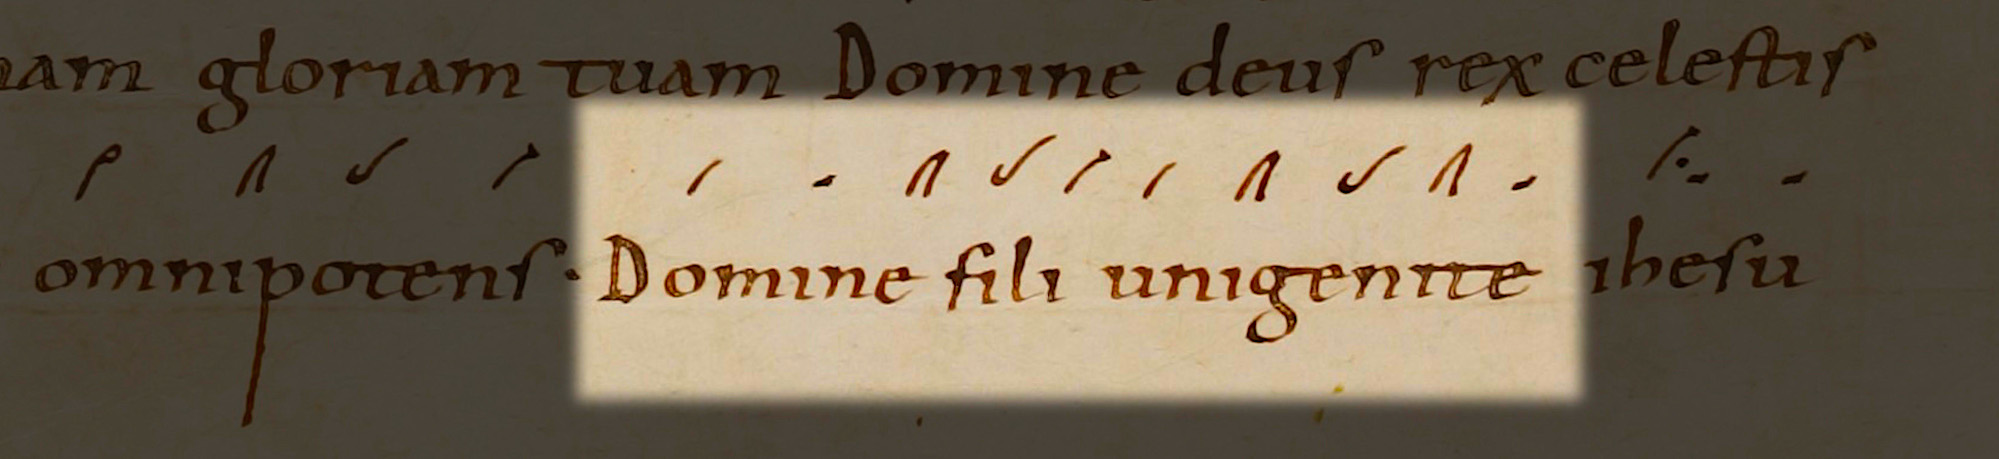 nam gloriam tuam Domine deus rex celestis
omnipotens· Domine fili unigenite ihesu